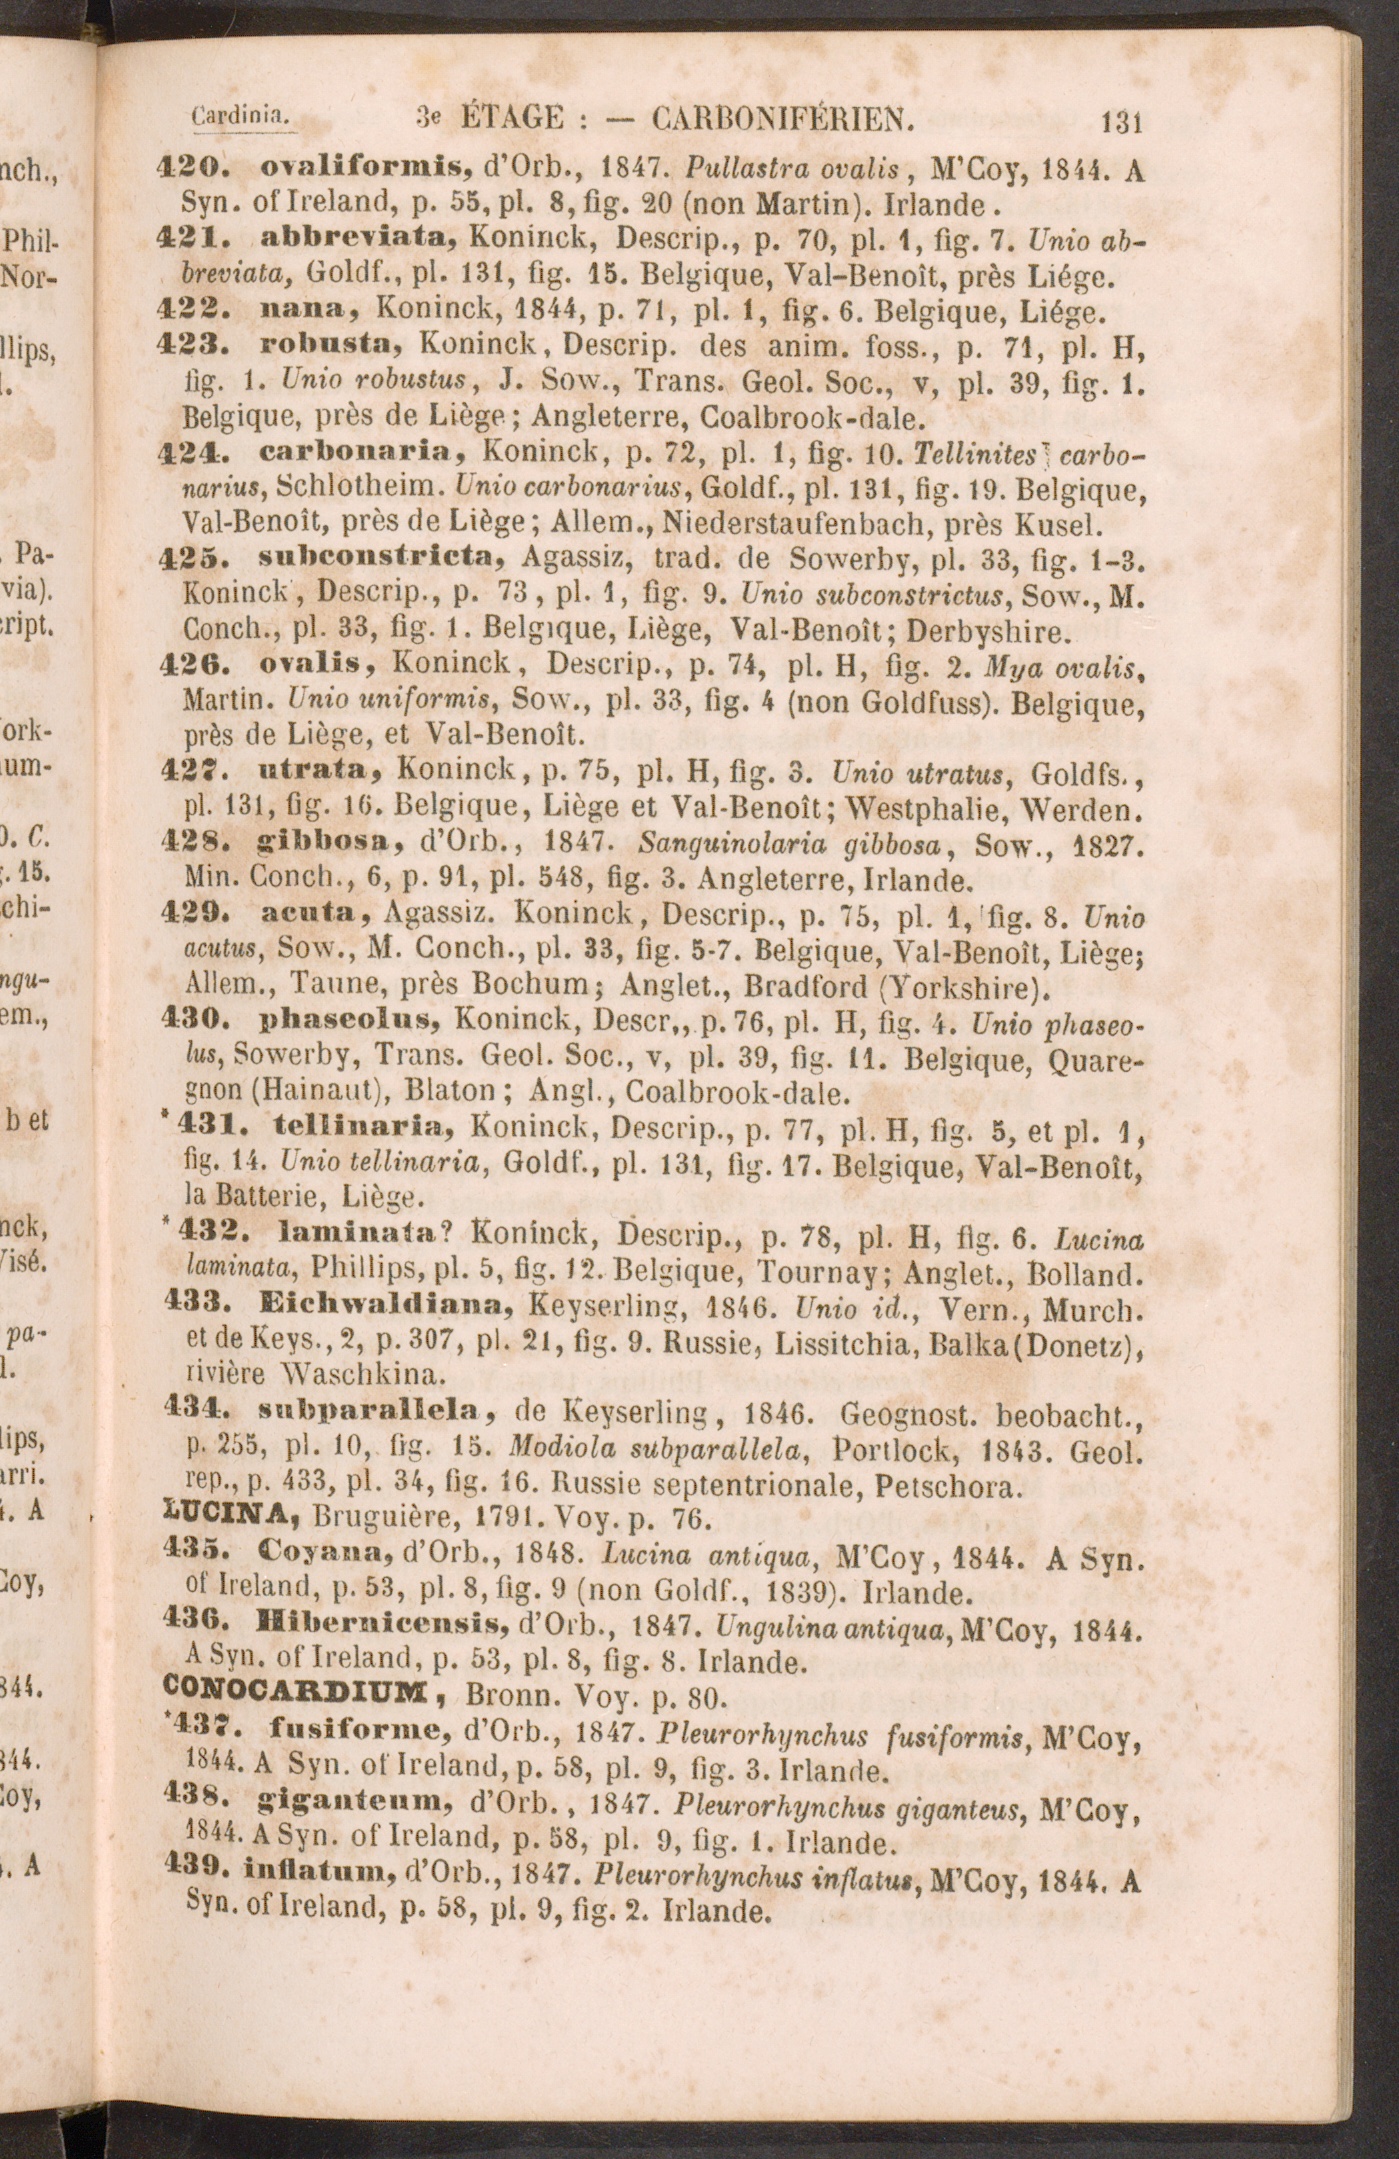 Cardinia. 3e ÉTAGE : — CARBONIFÉRIEN. 131
420. ovaliformis, d'Orb., 1847. Pullastra ovalis, M'Coy, 1844. A
Syn. of Ireland, p. 55, pl. 8, fig. 20 (non Martin). Irlande.
421. abbreviata, Koninck, Descrip., p. 70, pl. 1, fig. 7. Unio ab-
breviata, Goldf., pl. 131, fig. 15. Belgique, Val-Benoît, près Liége.
422. nana, Koninck, 1844, p. 71, pl. 1, fig. 6. Belgique, Liége.
423. robusta, Koninck, Descrip. des anim. foss., p. 71, pl. H,
fig. 1. Unio robustus, J. Sow., Trans. Geol. Soc., v, pl. 39, fig. 1.
Belgique, près de Liège; Angleterre, Coalbrook-dale.
424. carbonaria, Koninck, p. 72, pl. 1, fig. 10. Tellinites carbo-
narius, Schlotheim. Unio carbonarius, Goldf., pl. 131, fig. 19. Belgique,
Val-Benoît, près de Liège; Allem., Niederstaufenbach, près Kusel.
425. subconstricta, Agassiz, trad. de Sowerby, pl. 33, fig. 1-3.
Koninck, Descrip., p. 73, pl. 1, fig. 9. Unio subconstrictus, Sow., M.
Conch., pl. 33, fig. 1. Belgique, Liège, Val-Benoît; Derbyshire.
426. ovalis, Koninck, Descrip., p. 74, pl. H, fig. 2. Mya ovalis,
Martin. Unio uniformis, Sow., pl. 33, fig. 4 (non Goldfuss). Belgique,
près de Liège, et Val-Benoît.
427. utrata, Koninck, p. 75, pl. H, fig. 3. Unio utratus, Goldfs.,
pl. 131, fig. 16. Belgique, Liège et Val-Benoît; Westphalie, Werden.
428. gibbosa, d'Orb., 1847. Sanguinolaria gibbosa, Sow., 1827.
Min. Conch., 6, p. 91, pl. 548, fig. 3. Angleterre, Irlande.
429. acuta, Agassiz. Koninck, Descrip., p. 75, pl. 1, fig. 8. Unio
acutus, Sow., M. Conch., pl. 33, fig. 5-7. Belgique, Val-Benoît, Liège;
Allem., Taune, près Bochum; Anglet., Bradford (Yorkshire).
430. phaseolus, Koninck, Descr,, p. 76, pl. H, fig. 4. Unio phaseo-
lus, Sowerby, Trans. Geol. Soc., v, pl. 39, fig. 11. Belgique, Quare-
gnon (Hainaut), Blaton; Angl., Coalbrook-dale.
*431. tellinaria, Koninck, Descrip., p. 77, pl. H, fig. 5, et pl. 1,
fig. 14. Unio tellinaria, Goldf., pl. 131, fig. 17. Belgique, Val-Benoît,
la Batterie, Liège.
*432. laminata? Koninck, Descrip., p. 78, pl. H, fig. 6. Lucina
laminata, Phillips, pl. 5, fig. 12. Belgique, Tournay; Anglet., Bolland.
433. Eichwaldiana, Keyserling, 1846. Unio id., Vern., Murch.
et de Keys., 2, p. 307, pl. 21, fig. 9. Russie, Lissitchia, Balka (Donetz),
rivière Waschkina.
434. subparallela, de Keyserling, 1846. Geognost. beobacht.,
p. 255, pl. 10, fig. 15. Modiola subparallela, Portlock, 1843. Geol.
rep., p. 433, pl. 34, fig. 16. Russie septentrionale, Petschora.
LUCINA, Bruguière, 1791. Voy. p. 76.
435. Coyana, d'Orb., 1848. Lucina antiqua, M'Coy, 1844. A Syn.
of Ireland, p. 53, pl. 8, fig. 9 (non Goldf., 1839). Irlande.
436. Hibernicensis, d'Orb., 1847. Ungulina antiqua, M'Coy, 1844.
A Syn. of Ireland, p. 53, pl. 8, fig. 8. Irlande.
CONOCARDIUM, Bronn. Voy. p. 80.
*437. fusiforme, d'Orb., 1847. Pleurorhynchus fusiformis, M'Coy,
1844. A Syn. of Ireland, p. 58, pl. 9, fig. 3. Irlande.
438. giganteum, d'Orb., 1847. Pleurorhynchus giganteus, M'Coy,
1844. A Syn. of Ireland, p. 58, pl. 9, fig. 1. Irlande.
439. inflatum, d'Orb., 1847. Pleurorhynchus inflatus, M'Coy, 1844. A
Syn. of Ireland, p. 58, pl. 9, fig. 2. Irlande.